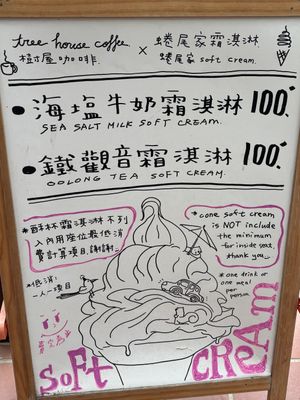 tree house coffee × 蜷尾家霜淇淋
樹屋咖啡 蜷尾家 soft cream.
•海塩牛奶霜淇淋 100.
SEA SALT MILK SOFT CREAM.
•鐵觀音霜淇淋 100.
OOLONG TEA SOFT CREAM.
*酥杯霜淇淋不列
入內用座位最低消
費計算項目,謝謝~
*cone soft cream
is NOT include
the minimum
for inside seat,
thank you~
*低消:
一人一項目
*one drink or
one meal
per
person.
SOFT CREAM